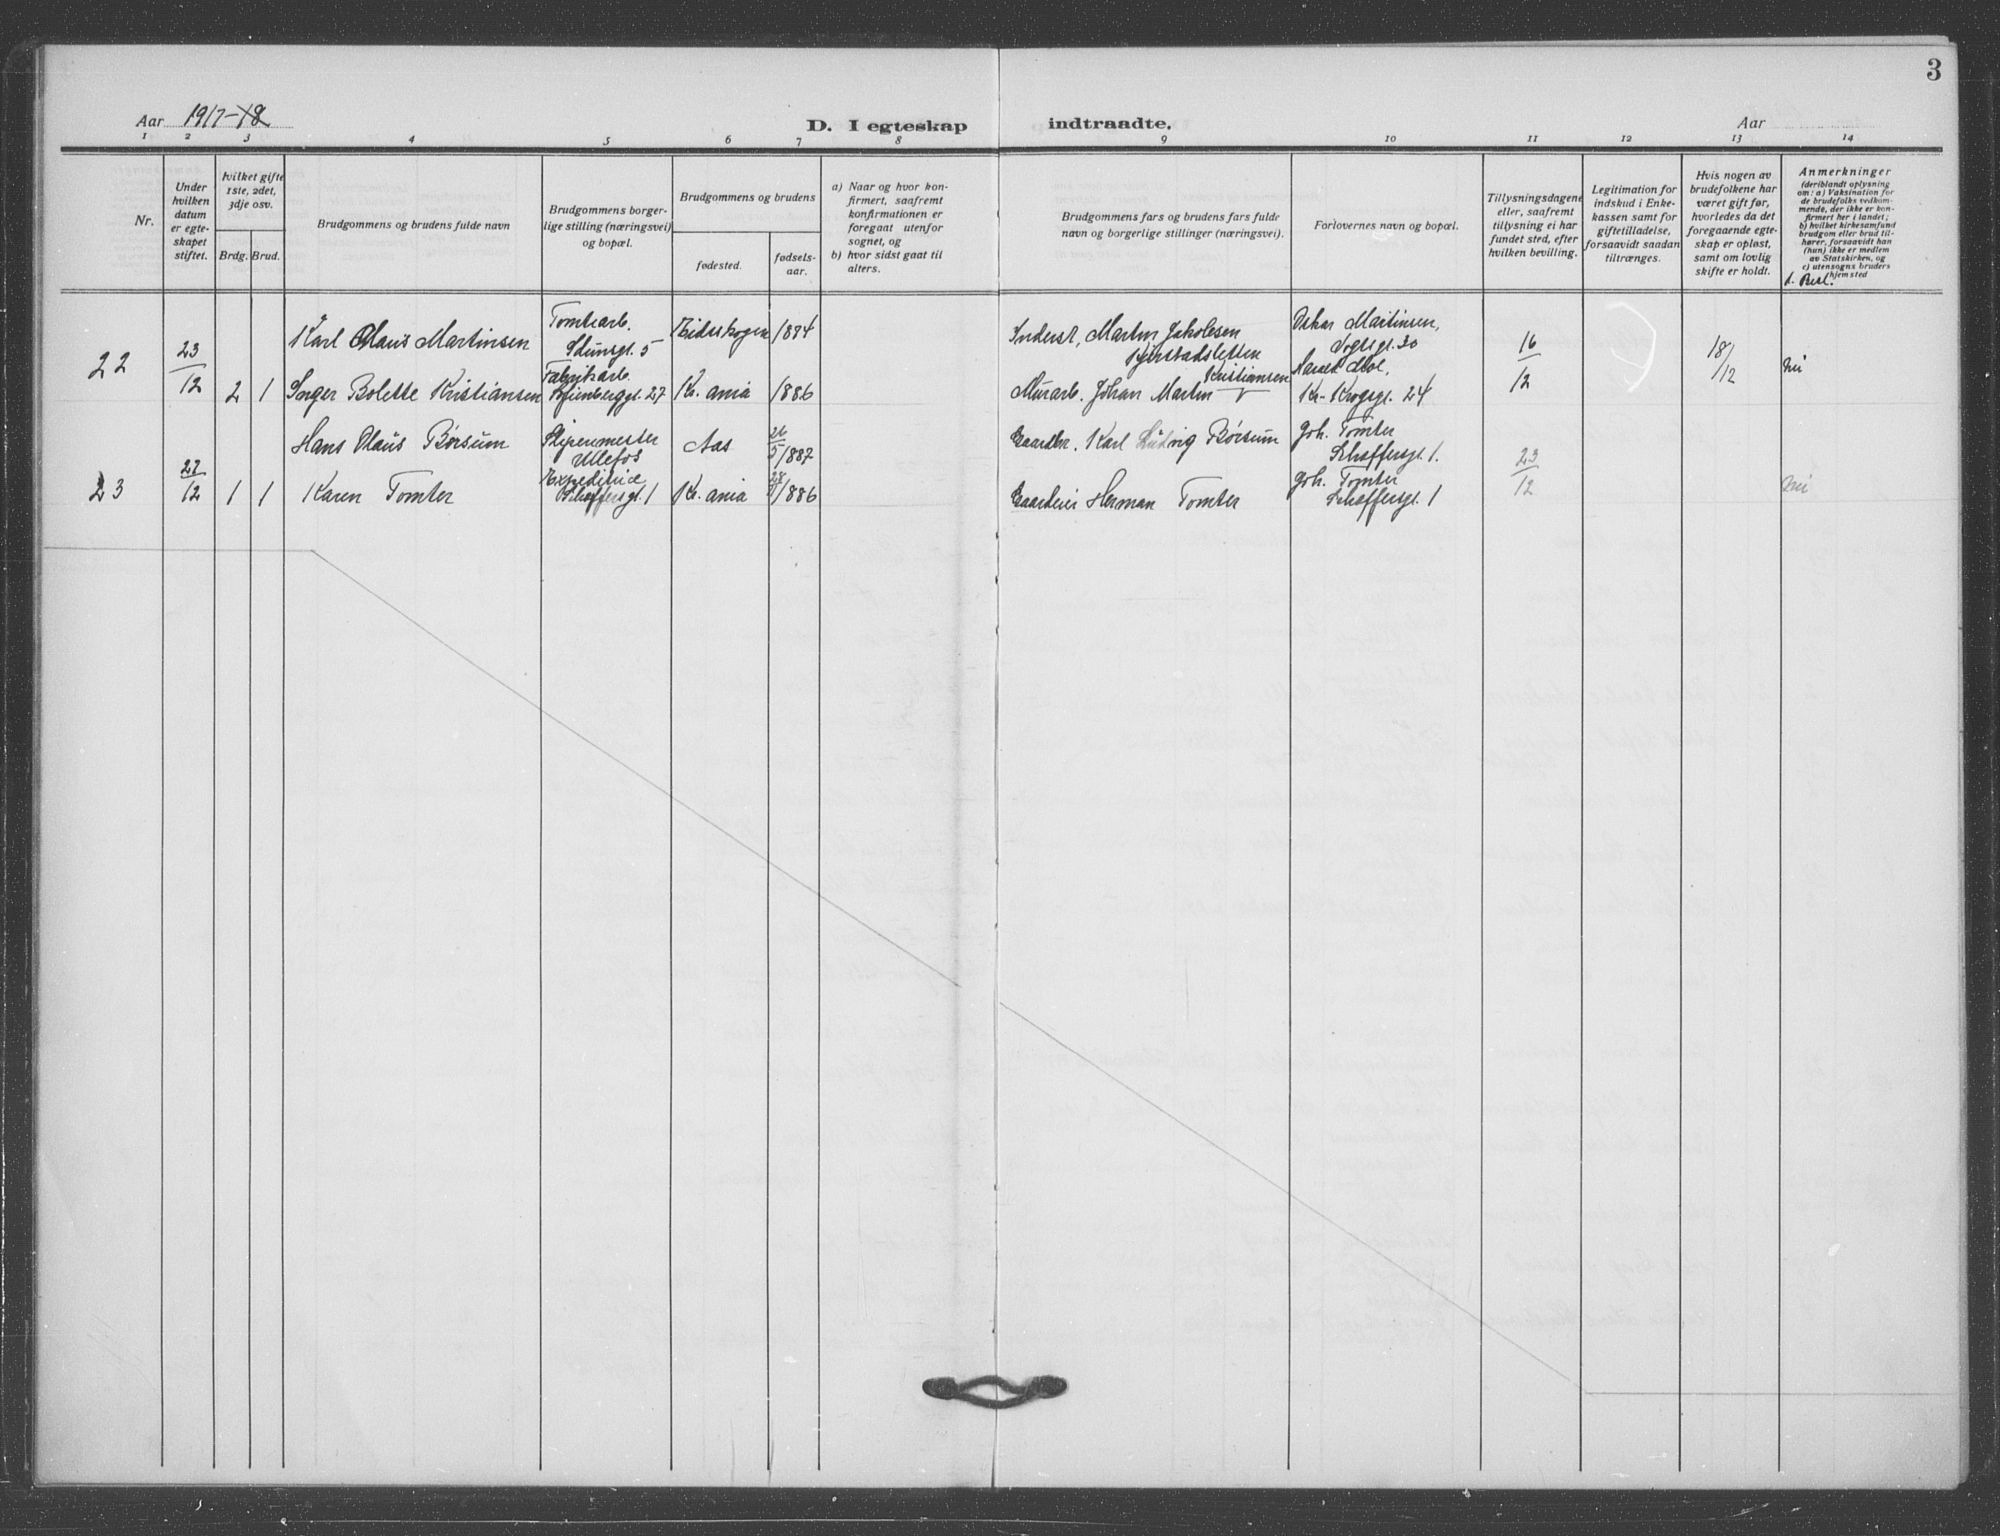 3
Aar 1917-18
D. I egteskap indtraadte.
Aar
1 2 3 4 5 6 7 8 9 10 11 12 13 14
Nr.
Under hvilken datum er egteskapet stiftet.
hvilket gifte 1ste, 2det, 3dje osv.
Brdg. Brud.
Brudgommens og brudens fulde navn
Brudgommens borgerlige stilling (næringsvei) og bopæl.
Brudgommens og brudens
fødested.
fødselsaar.
a) Naar og hvor konfirmert, saafremt konfirmationen er foregaat utenfor sognet, og
b) hvor sidst gaat til alters.
Brudgommens fars og brudens fars fulde navn og borgerlige stillinger (næringsvei).
Forlovernes navn og bopæl.
Tillysningsdagene eller, saafremt tillysning ei har fundet sted, efter hvilken bevilling.
Legitimation for indskud i Enkekassen samt for giftetilladelse, forsaavidt saadan tiltrænges.
Hvis nogen av brudefolkene har været gift før, hvorledes da det foregaaende egteskap er opløst, samt om lovlig skifte er holdt.
Anmerkninger (deriblandt oplysning om: a) Vaksination for de brudefolks vedkommende, der ikke er konfirmert her i landet; b) hvilket kirkesamfund brudgom eller brud tilhører, forsaavidt han (hun) ikke er medlem av Statskirken, og c) utensogns bruders hjemsted
d. Besl.
22 23/12 2 1
Karl Olaus Martinsen Tomtearb. 5 Eidskogen 1884 Inderst, Martin Jakobsen Oskar Martinsen, 30 16/12 18/12 nei
Bolette Kristiansen Fabrikarb. 27 Kr.ania 1886 Murarb. Johan Martin Kristiansen Kr. Krogsgt. 24
23 27/12 1 1
Hans Olaus Børsum Slipermester Ullefos Aas 26/5 1887 Gaardbr. Karl Ludvig Børsum Joh. Tomter Schaffersgt. 1. 23/12 nei
Karen Tomter Expeditrice Schaffersgt. 1 Kr.ania 1886 Gaardeier Herman Tomter Joh. Tomter Schaffersgt. 1